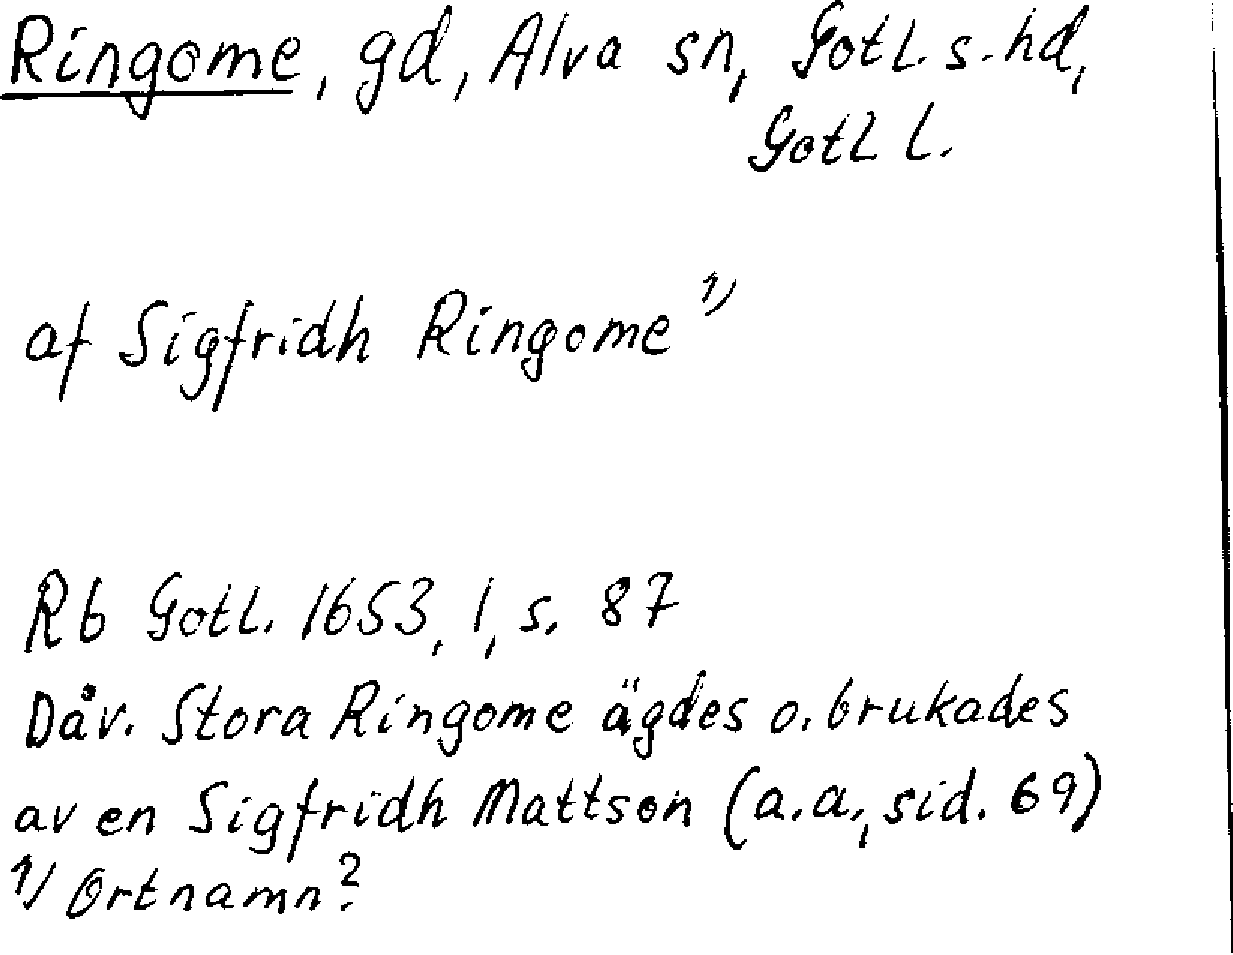 Ringome, gd, Alva sn, Gotl. s. hd,
Gotl l.
af Sigfridh Ringome 1)
Rb Gotl. 1653, 1, s. 87
Dåv. Stora Ringome ägdes o. brukades
av en Sigfridh Mattson (a.a., sid. 69)
1) Ortnamn?